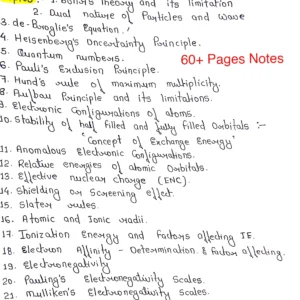 1. Bohr's Theory and its limitation
2. Dual nature of Particles and Wave
3. de-Broglie's Equation.
4. Heisenberg's Uncertainty Principle.
5. Quantum numbers.
60+ Pages Notes
6. Pauli's Exclusion Principle.
7. Hund's rule of maximum multiplicity.
8. Aufbau Principle and its limitations.
9. Electronic Configurations of atoms.
10. Stability of half filled and fully filled Orbitals :-
"Concept of Exchange Energy"
11. Anomalous Electronic Configurations.
12. Relative energies of atomic Orbitals.
13. Effective nuclear charge (ENC).
14. Shielding or Screening effect.
15. Slater rules.
16. Atomic and Ionic radii.
17. Ionization Energy and Factors affecting IE.
18. Electron Affinity - Determination & factor affecting.
19. Electronegativity
20. Pauling's Electronegativity Scales.
21. Mulliken's Electronegativity Scales.